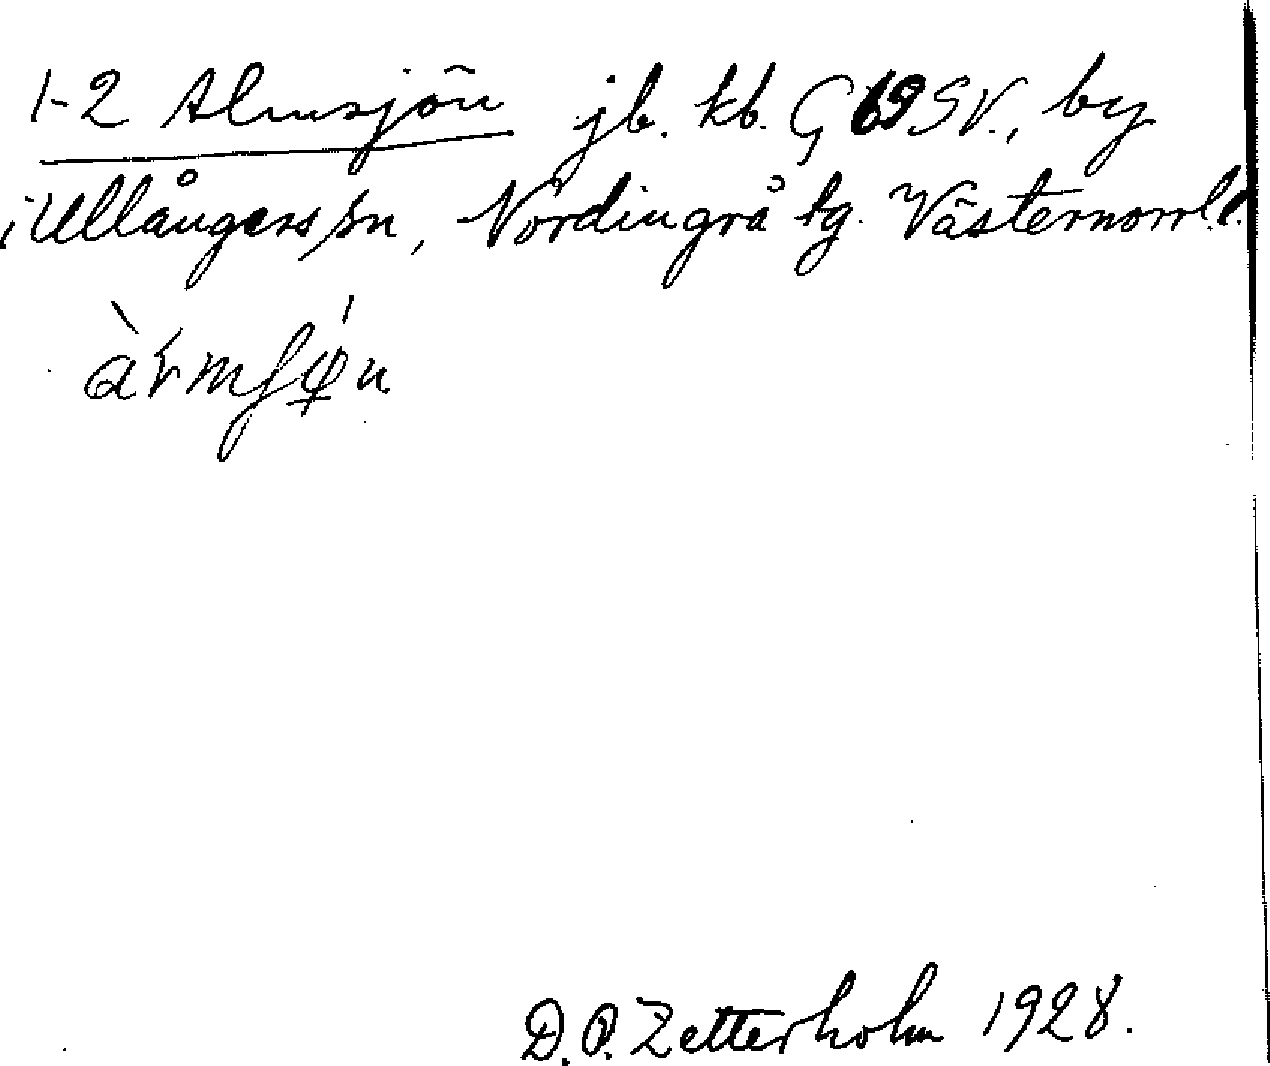 1-2 Almsjön jb. kb. G 69 SV., by
i Ullångers sn, Nordingrå tg. Västernorrl. l.
D. O. Zetterholm 1928.